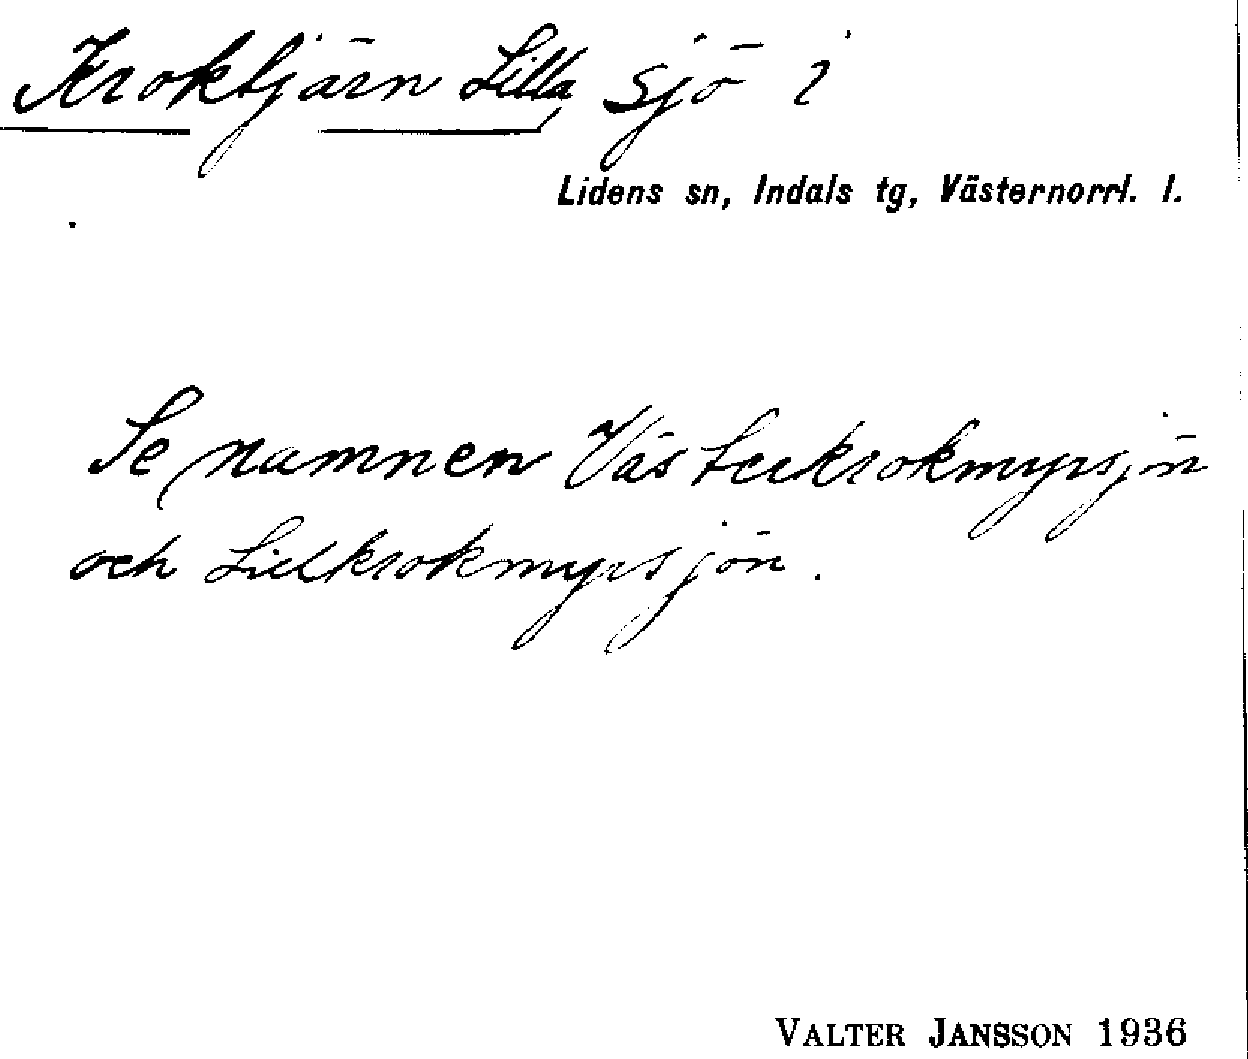 Kroktjärn Lilla sjö i
Lidens sn, Indals tg, Västernorrl. l.
Se namnen Västerkrokmyrsjön
och Lillkrokmyrsjön.
VALTER JANSSON 1936